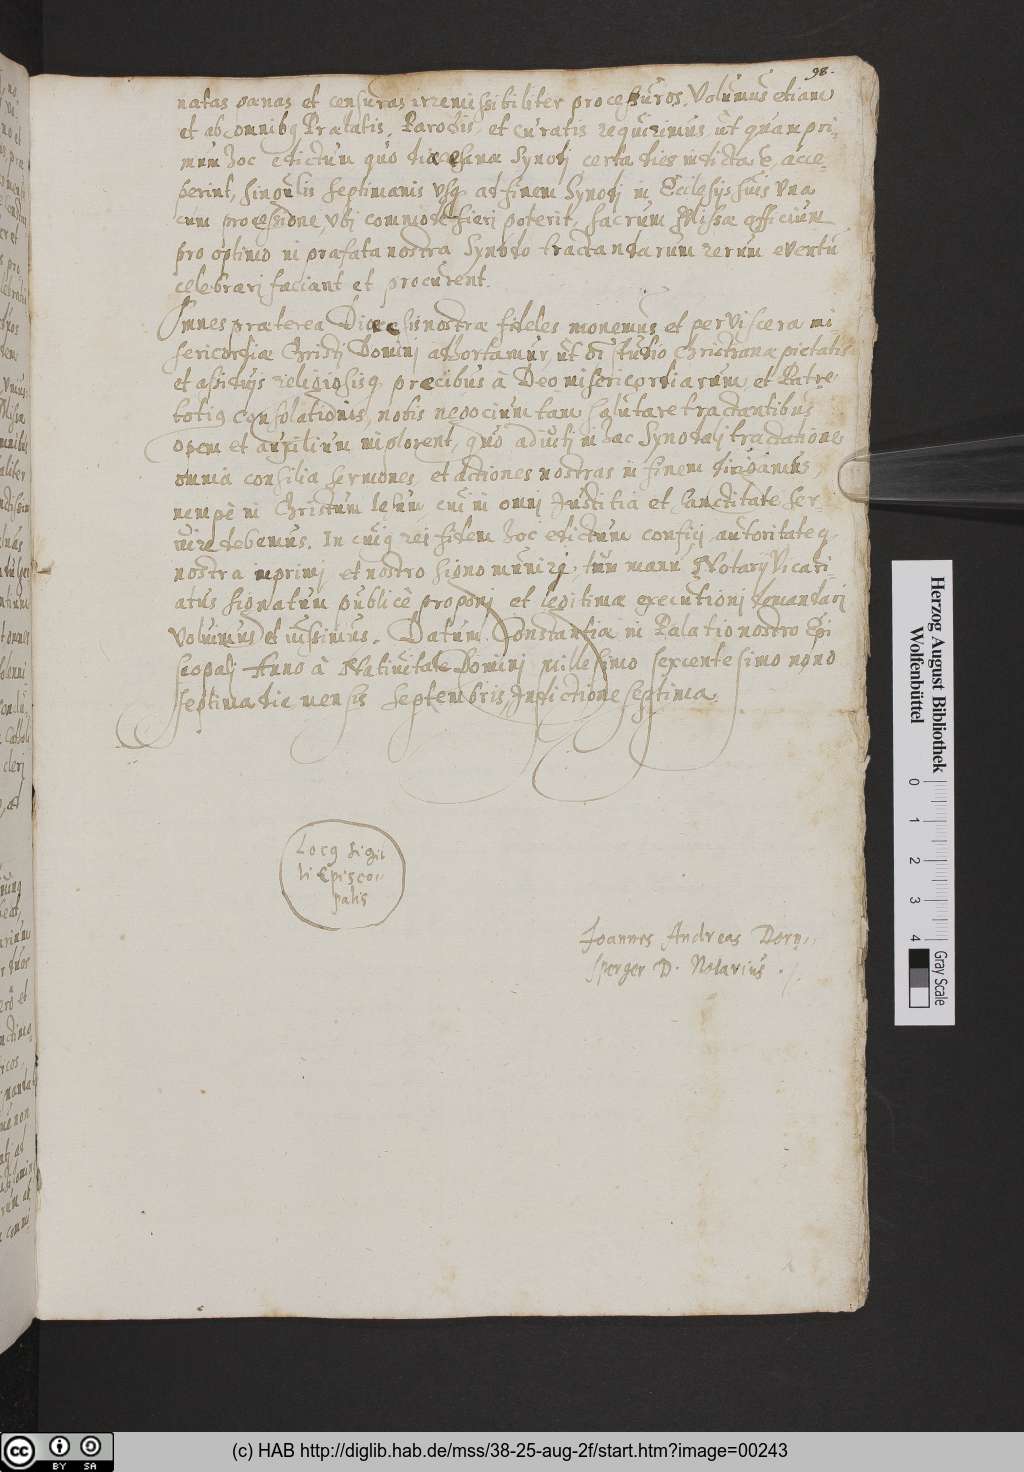 98.
natas pœnas et censuras irremissibiliter processuros. Volumus etiam
et ab omnibq Prælatis, Parochis, et curatis requirimus, ut quam pri-
mum hoc edictum quo diœcesanæ Synodj certa dies indicta e, acce-
perint, singulis septimanis vsq ad finem Synodj in Ecclesijs suis vna
cum processione, vbj commodè fieri poterit, sacrum Missæ officium
pro optimo in præfata nostra Synodo tractandarum rerum euentu
celebrarj faciant et procurent.
Omnes præterea Diœcesis nostræ fideles monemus et per viscera mi
sericordiæ Christj Dominj adhortamur, ut studio Christianæ pietatis
et assiduis religiosisq, præcibus à Deo misericordiarum et Patre
totiq consolationis, nobis negocium tam salutare tractantibus
opem et auxilium implorent, quo adiutj in hac Synodalj tractatione
omnia consilia sermones, et actiones nostras in finem dirigamus,
nempè in Christum Iesum, cui in omnj Iustitia et sanctitate ser-
uire debemus. In cuiq rei fidem hoc edictum confici, autoritate q
nostra imprimj et nostro signo munirj, tum manu Notarij Vicari-
atus signatum publicè proponj et legitimæ executionj demandarj
voluimus et iussimus. Datum Constantiæ in Palatio nostro Epi
scopalj Anno à Natiuitate Dominj millesimo sexcentesimo nono
septima die mensis Septembris, Indictione septima.
Locq sigil
li Episco-
palis
Joannes Andreas Dorn-
sperger D. Notarius
Herzog August Bibliothek
Wolfenbüttel
0 1 2 3 4
Gray Scale
cc BY SA
(c) HAB http://diglib.hab.de/mss/38-25-aug-2f/start.htm?image=00243